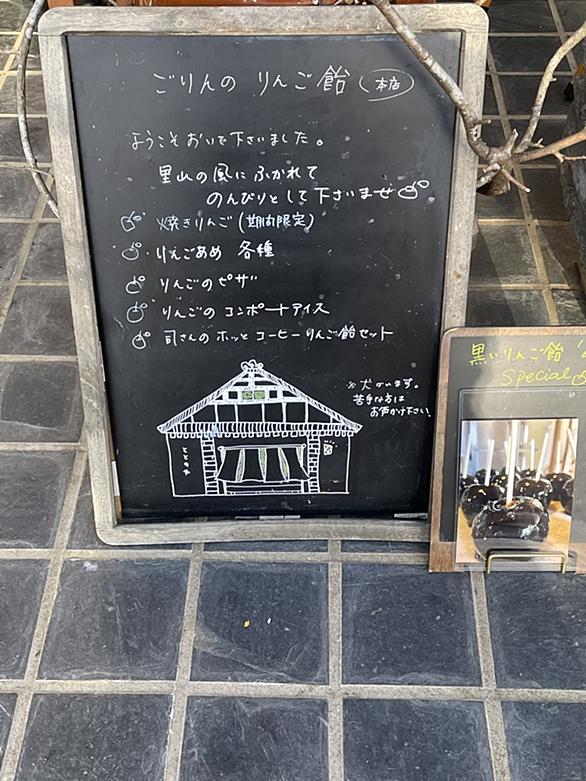 ごりんの りんご飴 本店
ようこそおいで下さいました。
里山の風に ふかれて
のんびりとして下さいませ
焼きりんご(期間限定)
りんごあめ 各種
りんごのピザ
りんごのコンポートアイス
司さんの ホッと コーヒー りんご飴セット
※犬がいます。
苦手な方は
お声かけ下さい。
黒いりんご飴
Special